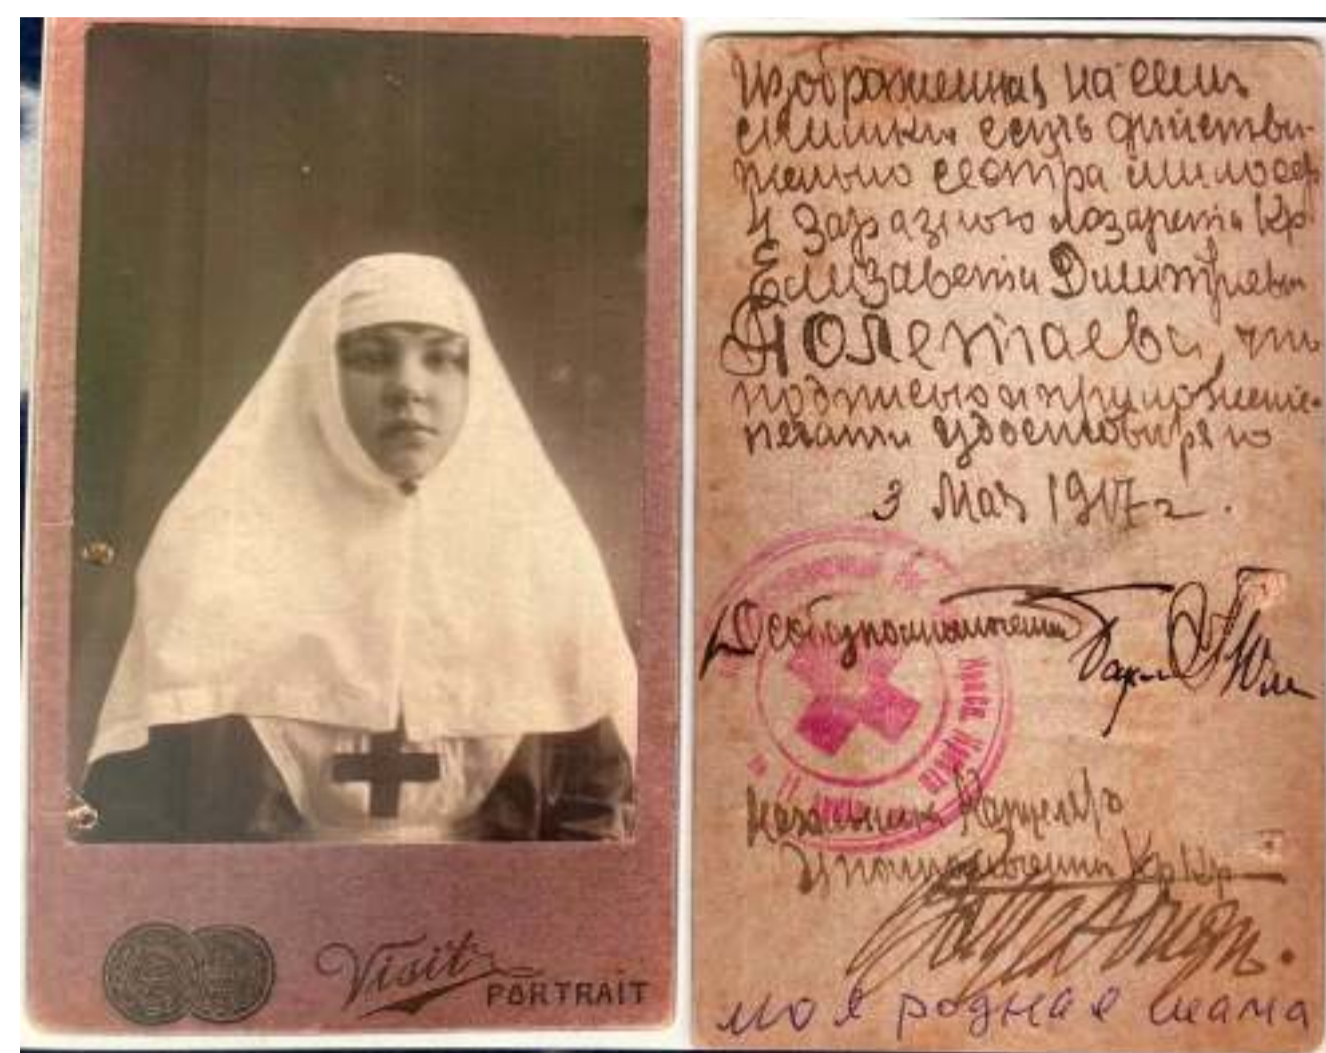 Visit
PORTRAIT
Изображенная на сем
снимке есть действи-
тельно сестра милосер
4 Заразного лазарета Кр
Елизавета Дмитриевн
Полетаева, что
подписью и приложение
печати удостоверяю
3 Мая 1917 г.
Особоуполномоченный
Красн. Креста
Начальник Канцеляр
Уполномоченного Кр Кр
моя родная мама